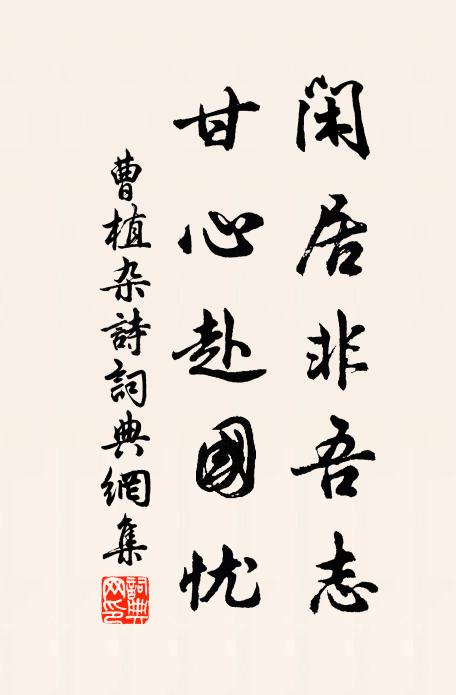 闲居非吾志
甘心赴國忧
曹植杂詩詞典網集
詞典网印